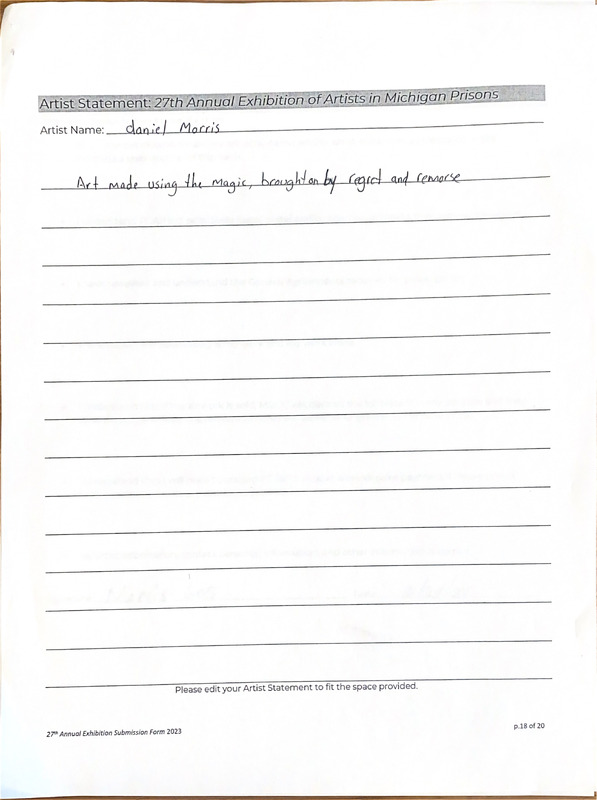 Artist Statement: 27th Annual Exhibition of Artists in Michigan Prisons
Artist Name: daniel Morris
Art made using the Magic, brought on by regret and remorse
Please edit your Artist Statement to fit the space provided.
27th Annual Exhibition Submission Form 2023
p.18 of 20